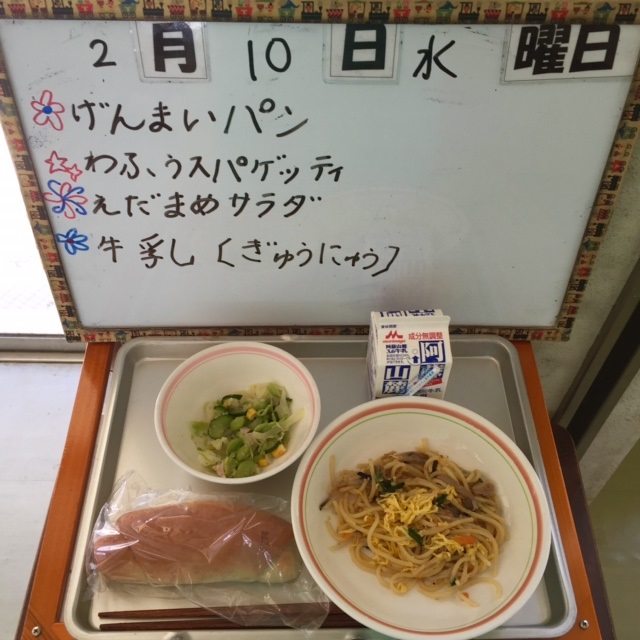 2月10日水曜日
げんまいパン
わふうスパゲッティ
えだまめサラダ
牛乳し〔ぎゅうにゅう〕
成分無調整